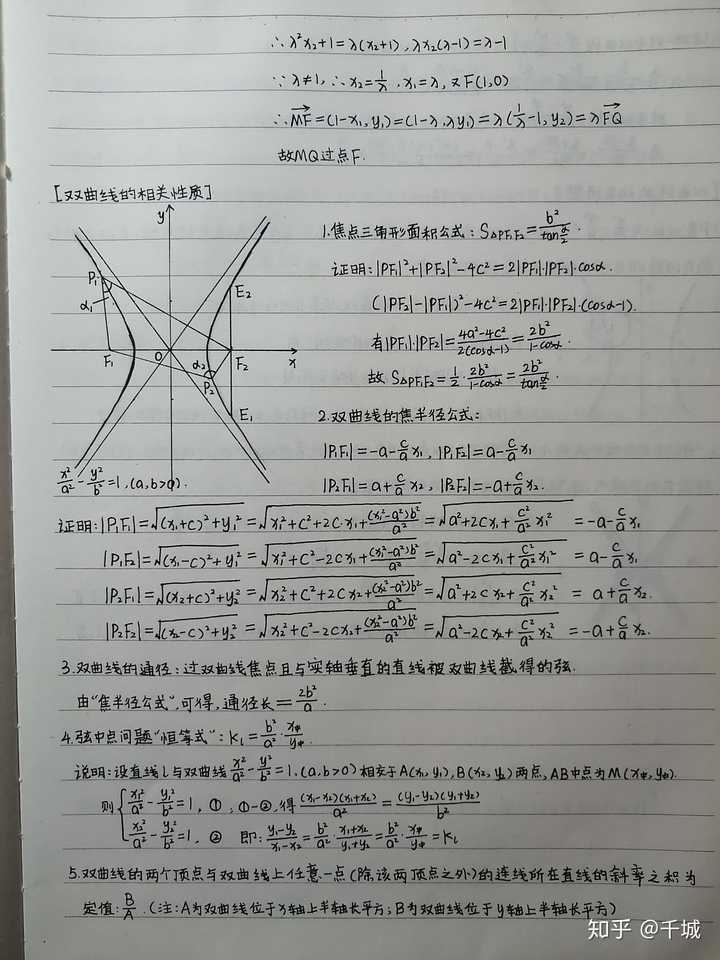 ∴λ²x₂+1=λ(x₂+1), λx₂(λ-1)=λ-1
∵λ≠1, ∴x₂=1/λ, x₁=λ, 又F(1,0)
∴MF→=(1-x₁,y₁)=(1-λ,λy₁)=λ(1/λ-1,y₂)=λFQ→
故MQ过点F.
[双曲线的相关性质]
y
P₁
α₁
E₂
F₁
O
α₂
P₂
F₂
x
E₁
x²/a²-y²/b²=1,(a,b>0).
1.焦点三角形面积公式:S△PF₁F₂=b²/tan(α/2)
证明:|PF₁|²+|PF₂|²-4c²=2|PF₁|·|PF₂|·cosα.
(|PF₂|-|PF₁|)²-4c²=2|PF₁|·|PF₂|·(cosα-1).
有|PF₁|·|PF₂|=(4a²-4c²)/(2(cosα-1))=2b²/(1-cosα)
故 S△PF₁F₂=1/2·2b²/(1-cosα)=2b²/tan(α/2).
2.双曲线的焦半径公式:
|P₁F₁|=-a-(c/a)x₁, |P₁F₂|=a-(c/a)x₁
|P₂F₁|=a+(c/a)x₂, |P₂F₂|=-a+(c/a)x₂.
证明:|P₁F₁|=√((x₁+c)²+y₁²)=√(x₁²+c²+2c·x₁+(x₁²-a²)b²/a²)=√(a²+2cx₁+(c²/a²)x₁²)=-a-(c/a)x₁
|P₁F₂|=√((x₁-c)²+y₁²)=√(x₁²+c²-2cx₁+(x₁²-a²)b²/a²)=√(a²-2cx₁+(c²/a²)x₁²)=a-(c/a)x₁
|P₂F₁|=√((x₂+c)²+y₂²)=√(x₂²+c²+2cx₂+(x₂²-a²)b²/a²)=√(a²+2cx₂+(c²/a²)x₂²)=a+(c/a)x₂.
|P₂F₂|=√((x₂-c)²+y₂²)=√(x₂²+c²-2cx₂+(x₂²-a²)b²/a²)=√(a²-2cx₂+(c²/a²)x₂²)=-a+(c/a)x₂.
3.双曲线的通径:过双曲线焦点且与实轴垂直的直线被双曲线截得的弦.
由“焦半径公式”,可得,通径长=2b²/a.
4.弦中点问题“恒等式”:K_l=b²/a²·x中/y中.
说明:设直线l与双曲线x²/a²-y²/b²=1.(a,b>0)相交于A(x₁,y₁),B(x₂,y₂)两点,AB中点为M(x中,y中).
则{x₁²/a²-y₁²/b²=1, ①, ①-②,得(x₁-x₂)(x₁+x₂)/a²=(y₁-y₂)(y₁+y₂)/b²
x₂²/a²-y₂²/b²=1, ② 即:(y₁-y₂)/(x₁-x₂)=b²/a²·(x₁+x₂)/(y₁+y₂)=b²/a²·x中/y中=K_l
5.双曲线的两个顶点与双曲线上任意一点(除该两顶点之外)的连线所在直线的斜率之积为
定值:B/A.(注:A为双曲线位于x轴上半轴长平方;B为双曲线位于y轴上半轴长平方)
知乎 @千城